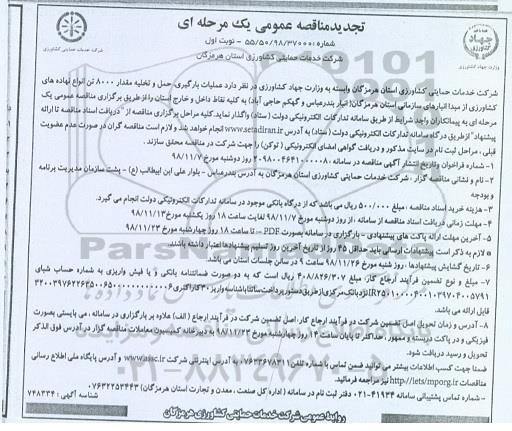 تجدیدمناقصه عمومی یک مرحله ای
شماره: ۵۵/۵۰/۹۸/۳۷۰۰۰ - نوبت اول
شرکت خدمات حمایتی کشاورزی استان هرمزگان
جهاد کشاورزی
وزارت جهاد کشاورزی
شرکت خدمات حمایتی کشاورزی
شرکت خدمات حمایتی کشاورزی استان هرمزگان وابسته به وزارت جهاد کشاورزی در نظر دارد عملیات بارگیری، حمل و تخلیه مقدار ۸۰۰۰ تن انواع نهاده های
کشاورزی از مبدا انبارهای سازمانی استان هرمزگان( انبار بندرعباس و گهکم حاجی آباد) به کلیه نقاط داخل و خارج استان را از طریق برگزاری مناقصه عمومی یک
مرحله ای به پیمانکاران واجد شرایط از طریق سامانه تدارکات الکترونیکی دولت (ستاد) واگذار نماید. کلیه مراحل برگزاری مناقصه از "دریافت اسناد مناقصه تا ارائه
پیشنهاد" از طریق درگاه سامانه تدارکات الکترونیکی دولت (ستاد) به آدرس www.setadiran.ir انجام خواهد شد و لازم است مناقصه گران در صورت عدم عضویت
قبلی ، مراحل ثبت نام در سایت مذکور و دریافت گواهی امضای الکترونیکی ( توکن) را جهت شرکت در مناقصه محقق سازند .
۱- شماره فراخوان وتاریخ انتشار آگهی مناقصه در سامانه ۲۰۹۸۰۰۴۶۴۱۰۰۰۰۰۸ روز دوشنبه مورخ ۹۸/۱۱/۷
۲- نام و نشانی مناقصه گزار ، شرکت خدمات حمایتی کشاورزی استان هرمزگان به آدرس بندرعباس - بلوار علی ابن ابیطالب (ع) - پشت سازمان مدیریت برنامه
و بودجه
۳- هزینه خرید اسناد مناقصه : مبلغ ۵۰۰/۰۰۰ ریال می باشد که از درگاه بانکی موجود در سامانه تدارکات الکترونیکی دولت انجام می گیرد.
۴- مهلت زمانی دریافت اسناد مناقصه از سامانه ، از روز دوشنبه مورخ ۹۸/۱۱/۷ لغایت ساعت ۱۸ روز یکشنبه مورخ ۹۸/۱۱/۱۳
۵- آخرین مهلت ارائه پاکت های پیشنهادی - بارگزاری در سامانه بصورت PDF -، تا ساعت ۱۸ روز چهارشنبه مورخ ۹۸/۱۱/۲۳
* لازم به ذکر است پیشنهادات ارسالی باید حداقل ۴۵ روز از تاریخ آخرین روز تسلیم پیشنهادها اعتبار داشته باشند.
۶- تاریخ گشایش پیشنهادها ، روز شنبه مورخ ۹۸/۱۱/۲۶ ساعت ۹ در سالن جلسات استان می باشد.
۷- مبلغ و نوع تضمین فرآیند ارجاع کار، مبلغ ۴۰۸/۸۲۶/۳۰۷ ریال است که به دو صورت ضمانتنامه بانکی و یا فیش واریزی به شماره حساب شبای
قابل ارائه می باشد.
۸- آدرس و زمان تحویل اصل تضمین شرکت در فرآیند ارجاع کار، اصل تضمین شرکت در فرآیند ارجاع (الف) علاوه بر بارگزاری در سامانه، می بایستی بصورت
فیزیکی و در پاکت دربسته و ممهور ، حداکثر تا پایان ساعت ۱۴ روز چهارشنبه مورخ ۹۸/۱۱/۲۳ به دبیرخانه کمیسیون معاملات مناقصه گزار در آدرس فوق الذکر
تحویل و رسید دریافت شود.
ضمنا جهت کسب اطلاعات بیشتر می توانید ضمن تماس با شماره تلفن ۰۷۶۳۳۶۷۸۳۱۱ به آدرس اینترنتی شرکت www.assc.ir و آدرس پایگاه ملی اطلاع رسانی
مناقصات http://iets/mporg.ir نیز مراجعه فرمائید.
- شماره تماس پشتیبانی سامانه ۴۱۹۳۴-۰۲۱ دفتر ثبت نام در سامانه (اداره کل صنعت ، معدن و تجارت استان هرمزگان) ۰۷۶۳۲۲۵۳۴۴۳
شناسه آگهی : ۷۴۸۳۳۴
روابط عمومی شرکت خدمات حمایتی کشاورزی هرمزگان